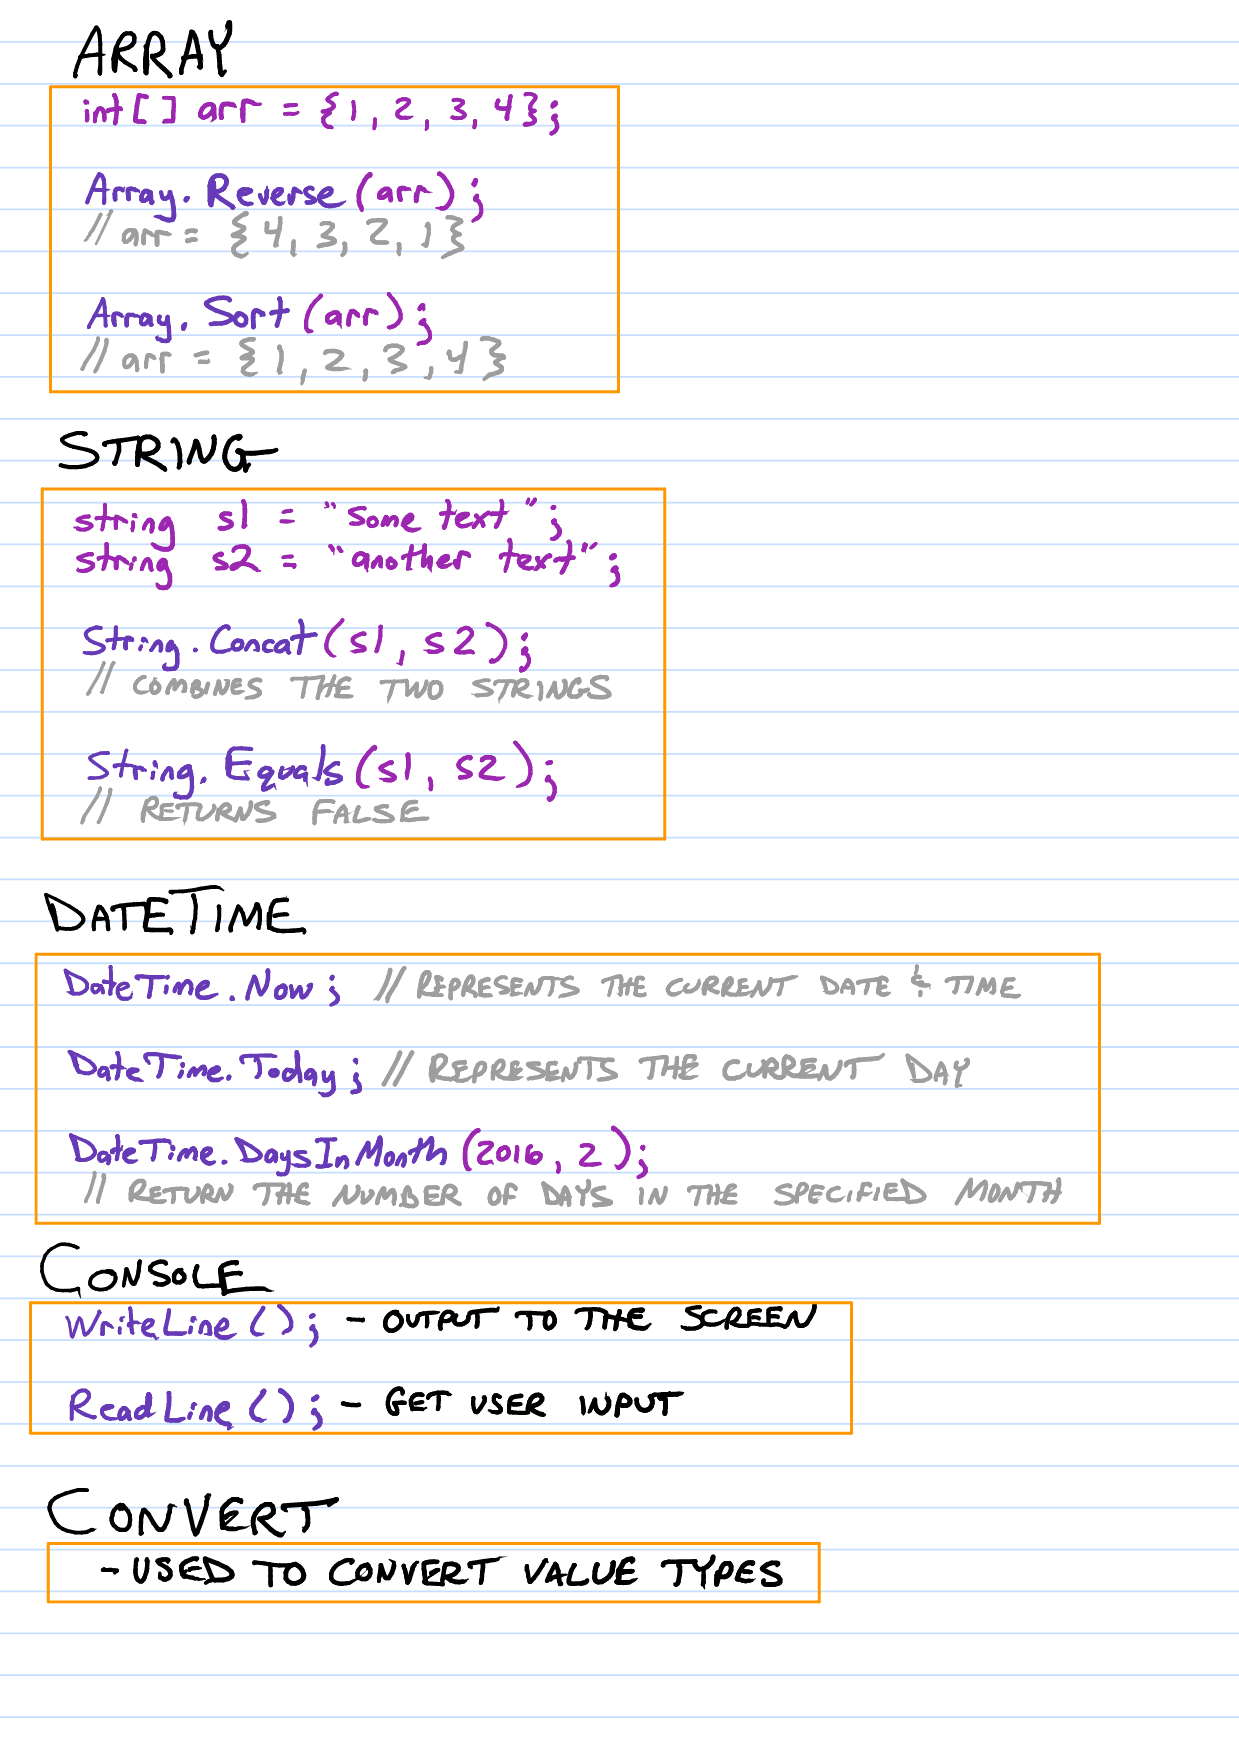 ARRAY
int[] arr = {1, 2, 3, 4};
Array.Reverse(arr);
// arr = {4, 3, 2, 1}
Array.Sort(arr);
// arr = {1, 2, 3, 4}
STRING
string s1 = "some text";
string s2 = "another text";
String.Concat(s1, s2);
// COMBINES THE TWO STRINGS
String.Equals(s1, s2);
// RETURNS FALSE
DATETIME
DateTime.Now; // REPRESENTS THE CURRENT DATE & TIME
DateTime.Today; // REPRESENTS THE CURRENT DAY
DateTime.DaysInMonth(2016, 2);
// RETURN THE NUMBER OF DAYS IN THE SPECIFIED MONTH
CONSOLE
WriteLine(); - OUTPUT TO THE SCREEN
ReadLine(); - GET USER INPUT
CONVERT
- USED TO CONVERT VALUE TYPES